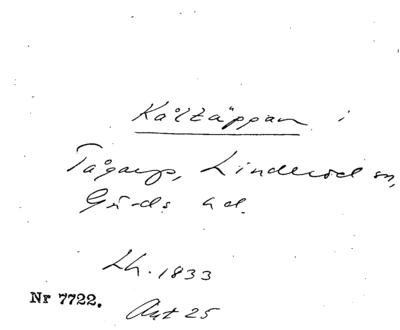 Kåltäppan i
Tågarp, Linderöd sn,
Gärds hd.
Lh. 1833
Nr 7722.
Akt 25